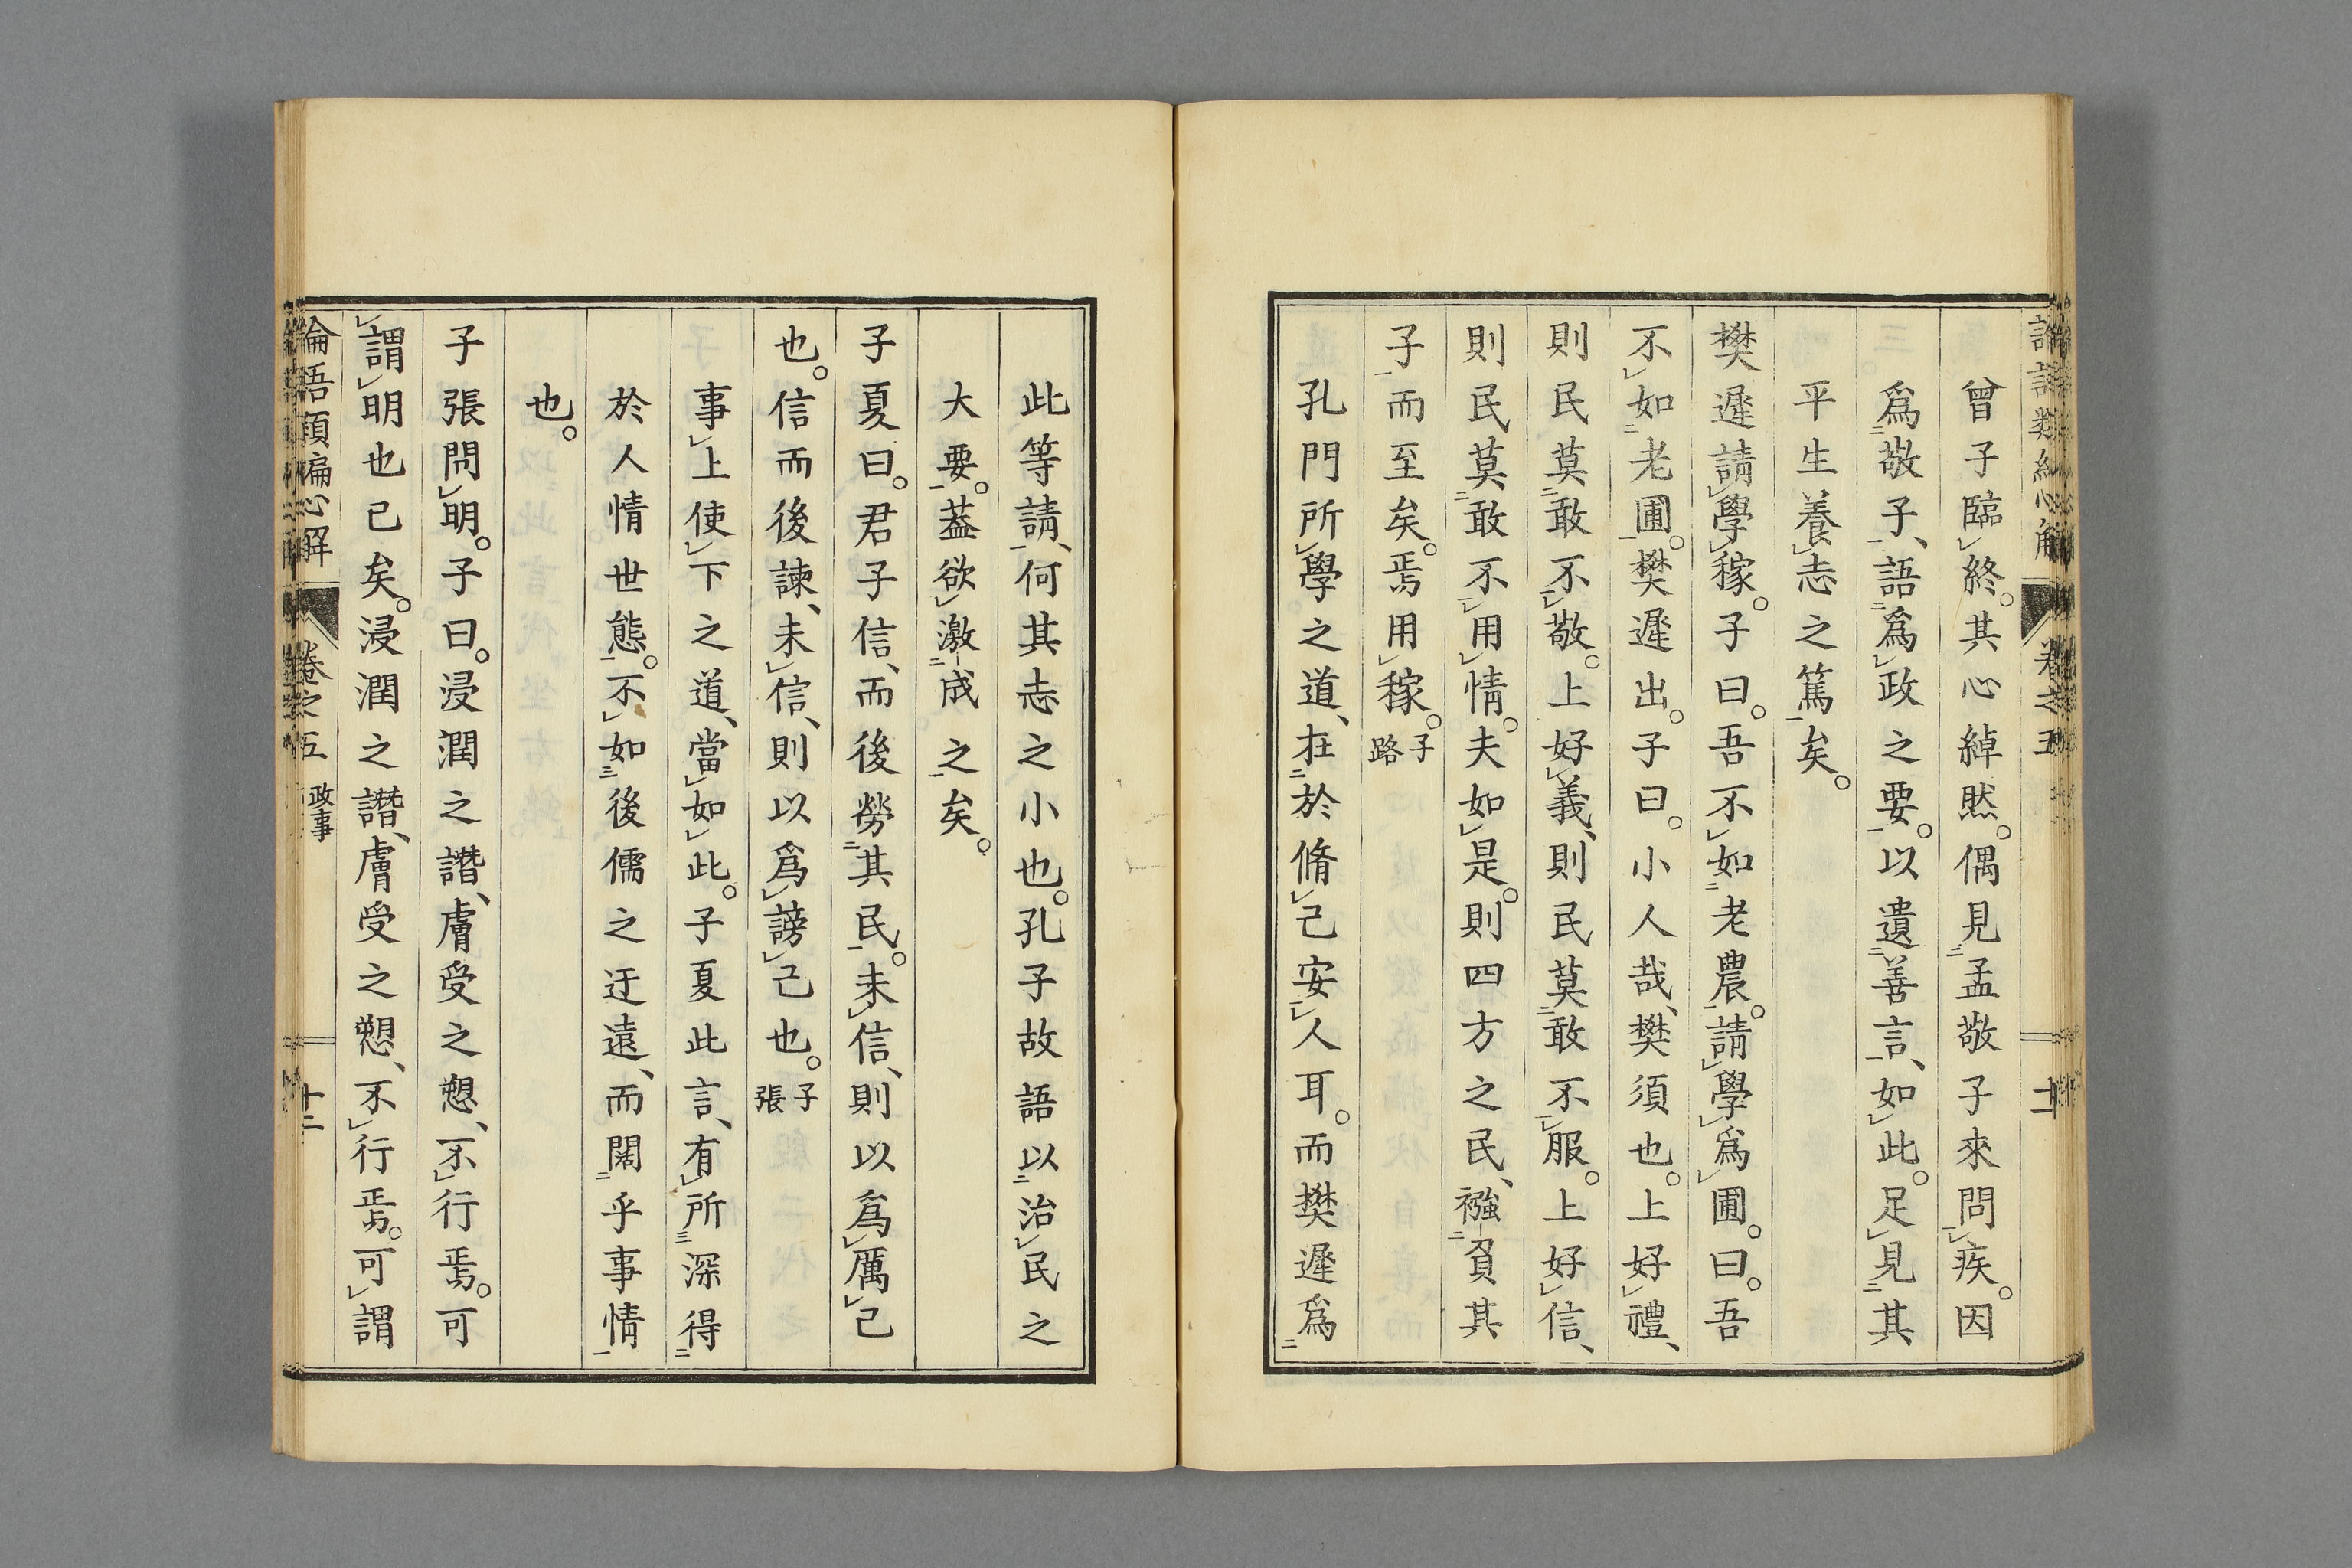 曾子臨終。其心綽然。偶見孟敬子來問疾。因
爲敬子、語爲政之要。以遺善言、如此。足見其
平生養志之篤矣。
樊遲請學稼。子曰。吾不如老農。請學爲圃。曰。吾
不如老圃。樊遲出。子曰。小人哉、樊須也。上好禮、
則民莫敢不敬。上好義、則民莫敢不服。上好信、
則民莫敢不用情。夫如是。則四方之民、襁負其
子而至矣。焉用稼。子路
孔門所學之道、在於脩己安人耳。而樊遲爲
此等請、何其志之小也。孔子故語以治民之
大要。蓋欲激成之矣。
子夏曰。君子信、而後勞其民。未信、則以爲厲己
也。信而後諫、未信、則以爲謗己也。子張
事上使下之道、當如此。子夏此言、有所深得
於人情世態。不如後儒之迂遠、而闊乎事情
也。
子張問明。子曰。浸潤之譖、膚受之愬、不行焉。可
謂明也已矣。浸潤之譖、膚受之愬、不行焉。可謂
論語類編心解 卷之五 政事 十二